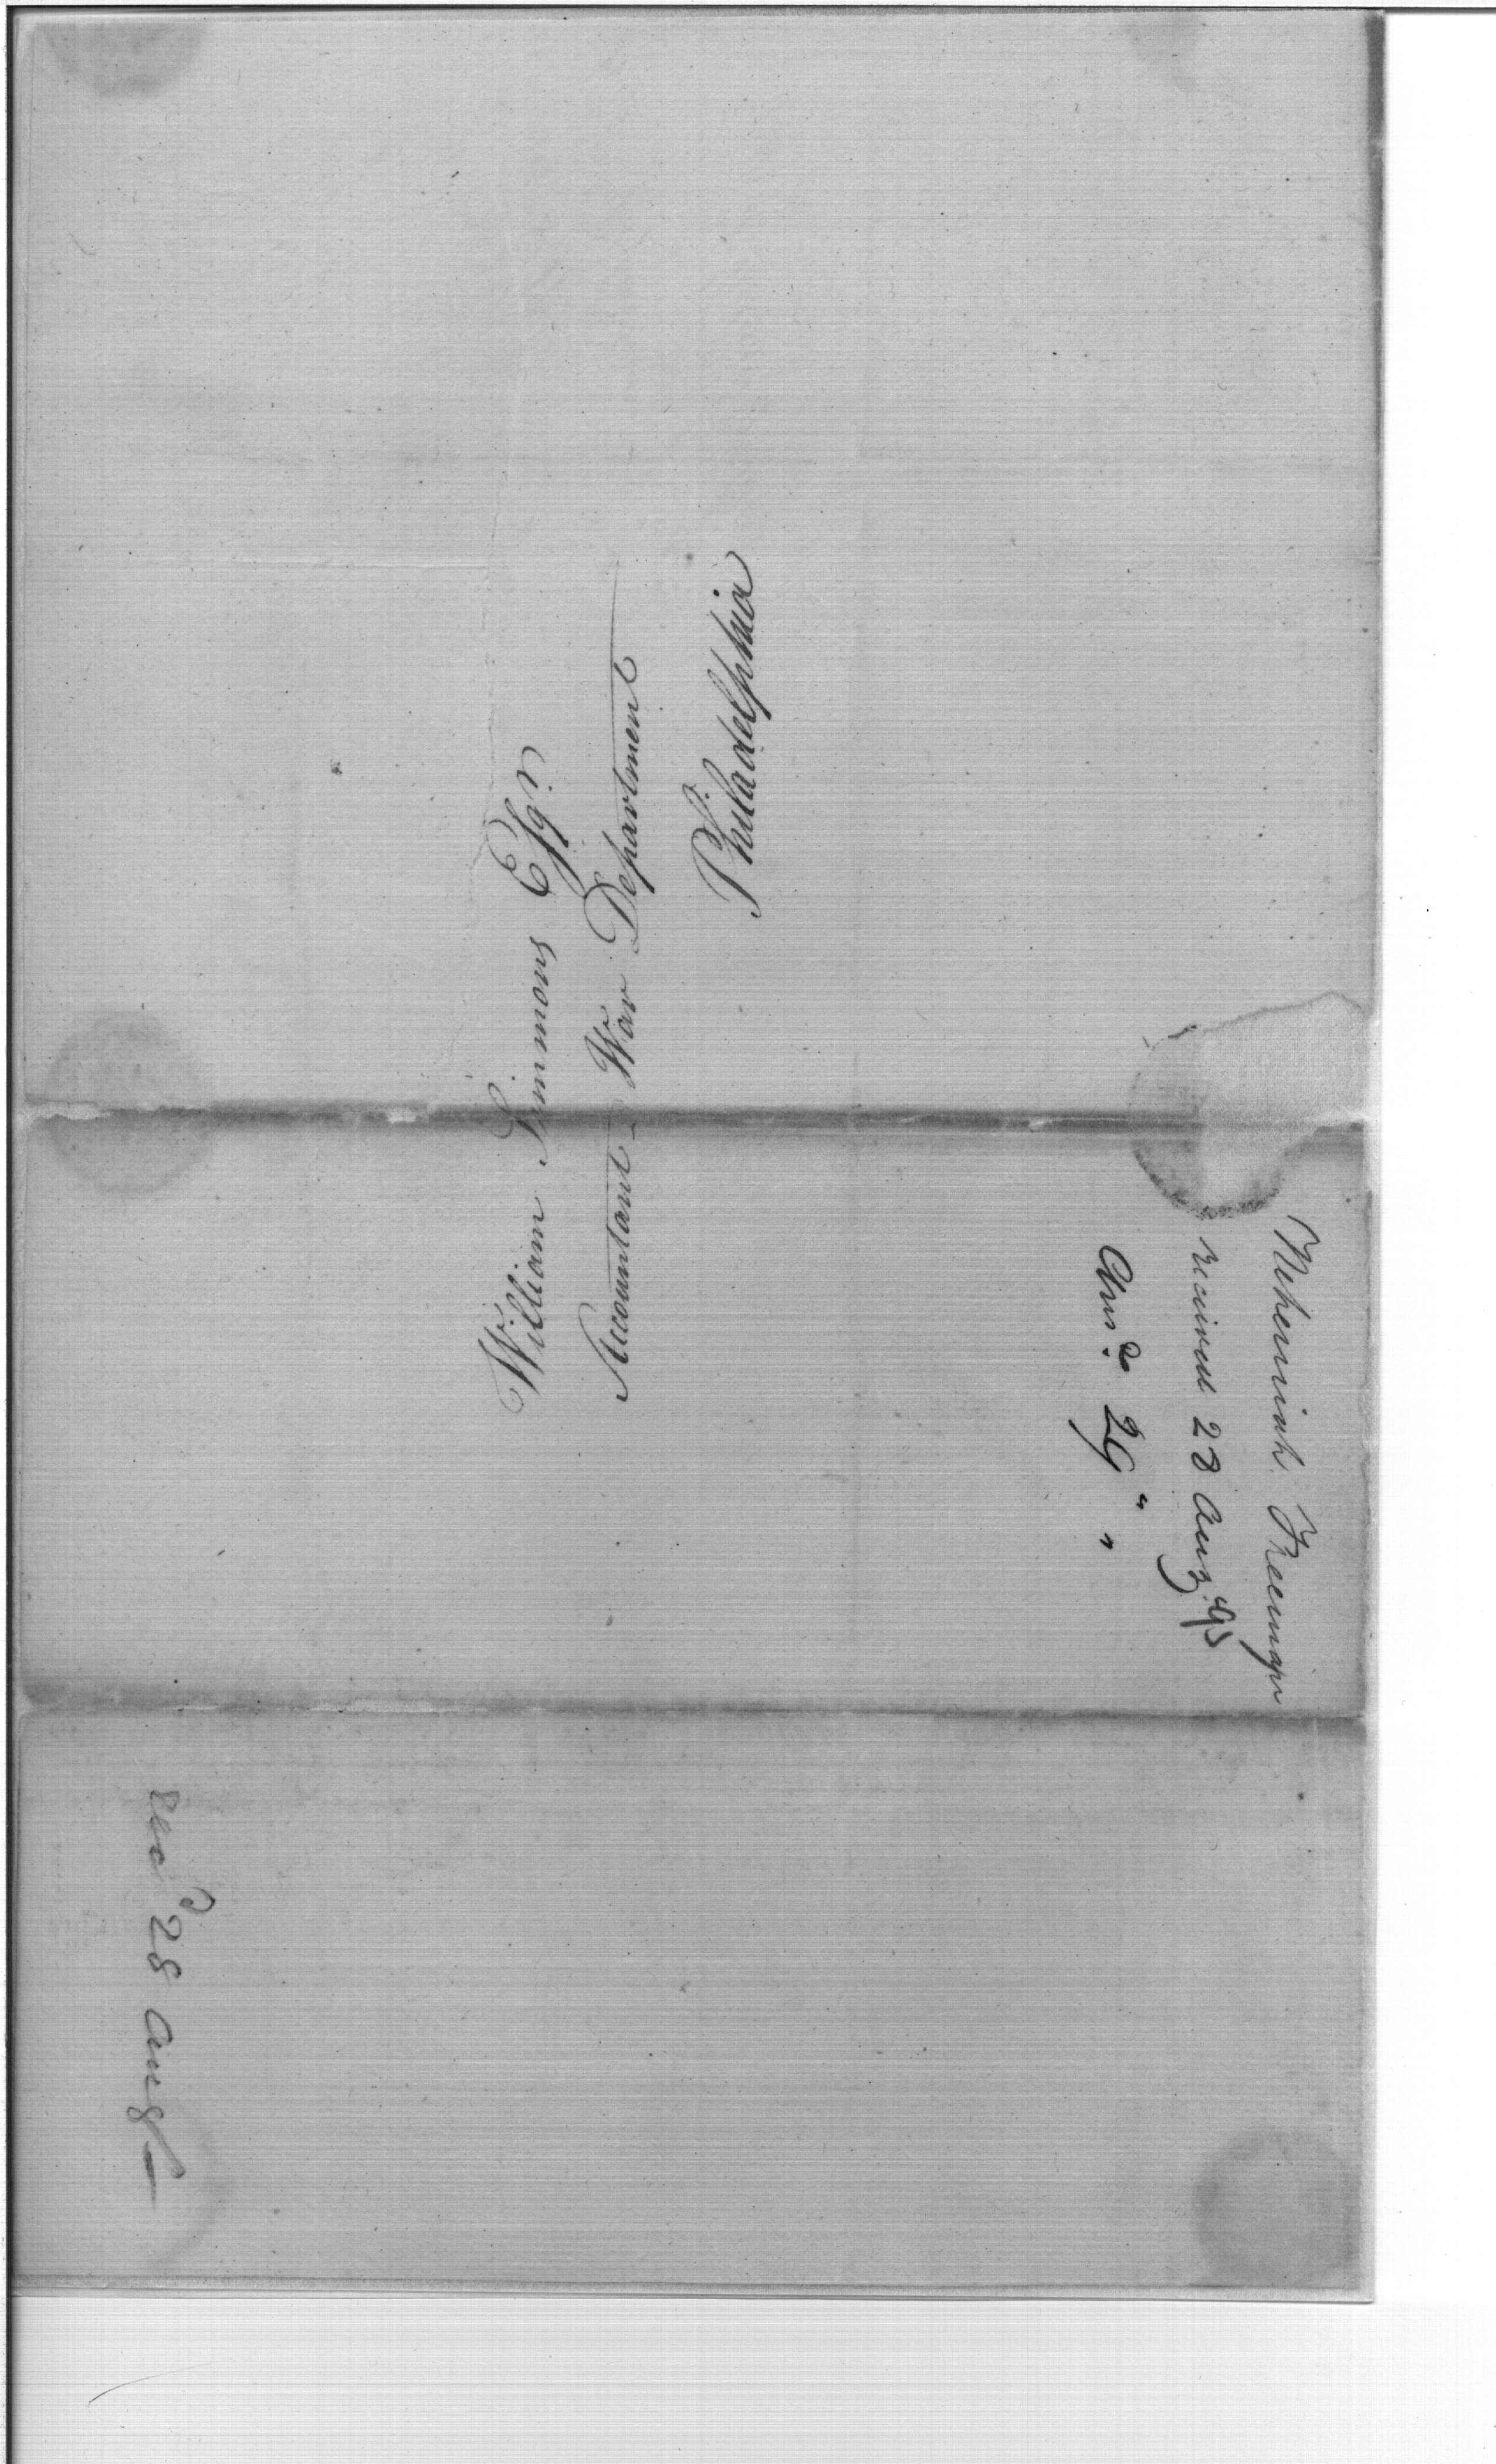 William Simmons Esqr.
Accountant War Department
Philadelphia
Nehemiah Freeman
received 28 Aug. 95
Ansd. 29 " "
Recd 28 Augt